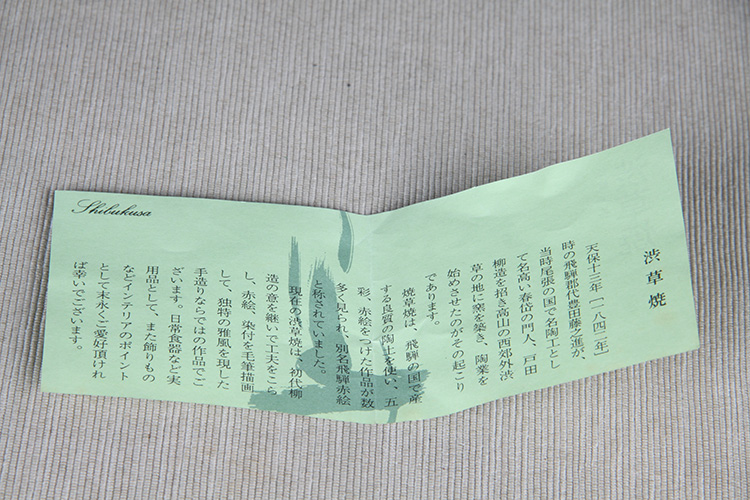 渋草焼
天保十三年(一八四二年)
時の飛騨郡代豊田藤之進が、
当時尾張の国で名陶工とし
て名高い春岱の門人、戸田
柳造を招き高山の西郊外渋
草の地に窯を築き、陶業を
始めさせたのがその起こり
であります。
焼草焼は、飛騨の国で産
する良質の陶土を使い、五
彩、赤絵をつけた作品が数
多く見られ、別名飛騨赤絵
と称されていました。
現在の渋草焼は、初代柳
造の意を継いで工夫をこら
し、赤絵、染付を毛筆描画
して、独特の雅風を現した
手造りならではの作品でご
ざいます。日常食器など実
用品として、また飾りもの
などインテリアのポイント
として末永くご愛好頂けれ
ば幸いでございます。
Shibukusa